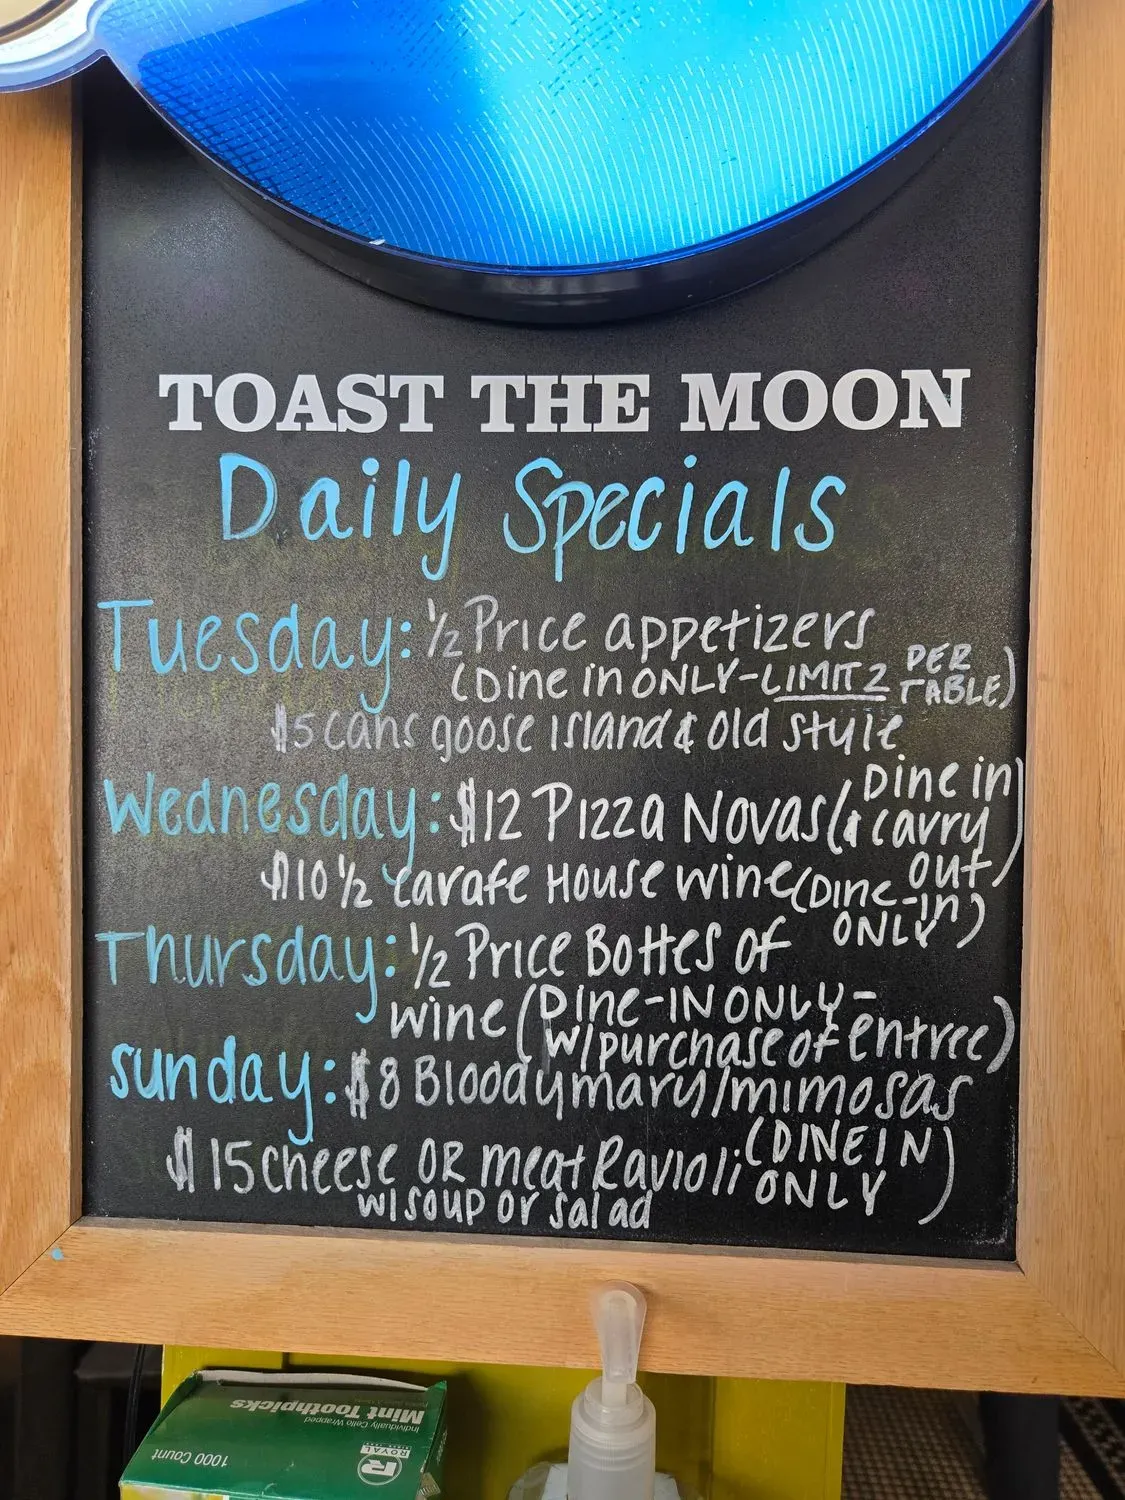 TOAST THE MOON
Daily Specials
Tuesday: 1/2 Price appetizers
(Dine in ONLY-LIMIT 2 PER TABLE)
$5 cans goose island & old style
Wednesday: $12 Pizza Novas (Dine in & carry out)
$10 1/2 carafe House wine (Dine-in ONLY)
Thursday: 1/2 Price Bottles of
wine (Dine-IN ONLY-
w/purchase of entree)
Sunday: $8 Bloodymary/mimosas
$15 cheese OR meat Ravioli (DINE IN ONLY)
w/soup or salad
1000 Count
Individually Cello Wrapped
Mint Toothpicks
R ROYAL